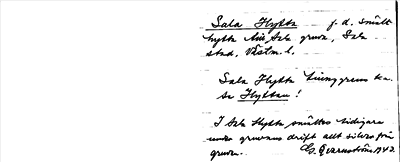 Sala Hytta f. d. smält
hytta till Sala gruva, Sala
stad, Västm. l.
Sala Hytta kallas
Hyttan!
I Sala Hytta smältes tidigare
under gruvans drift allt silver från
gruvan. G. Qvarnström 1943.